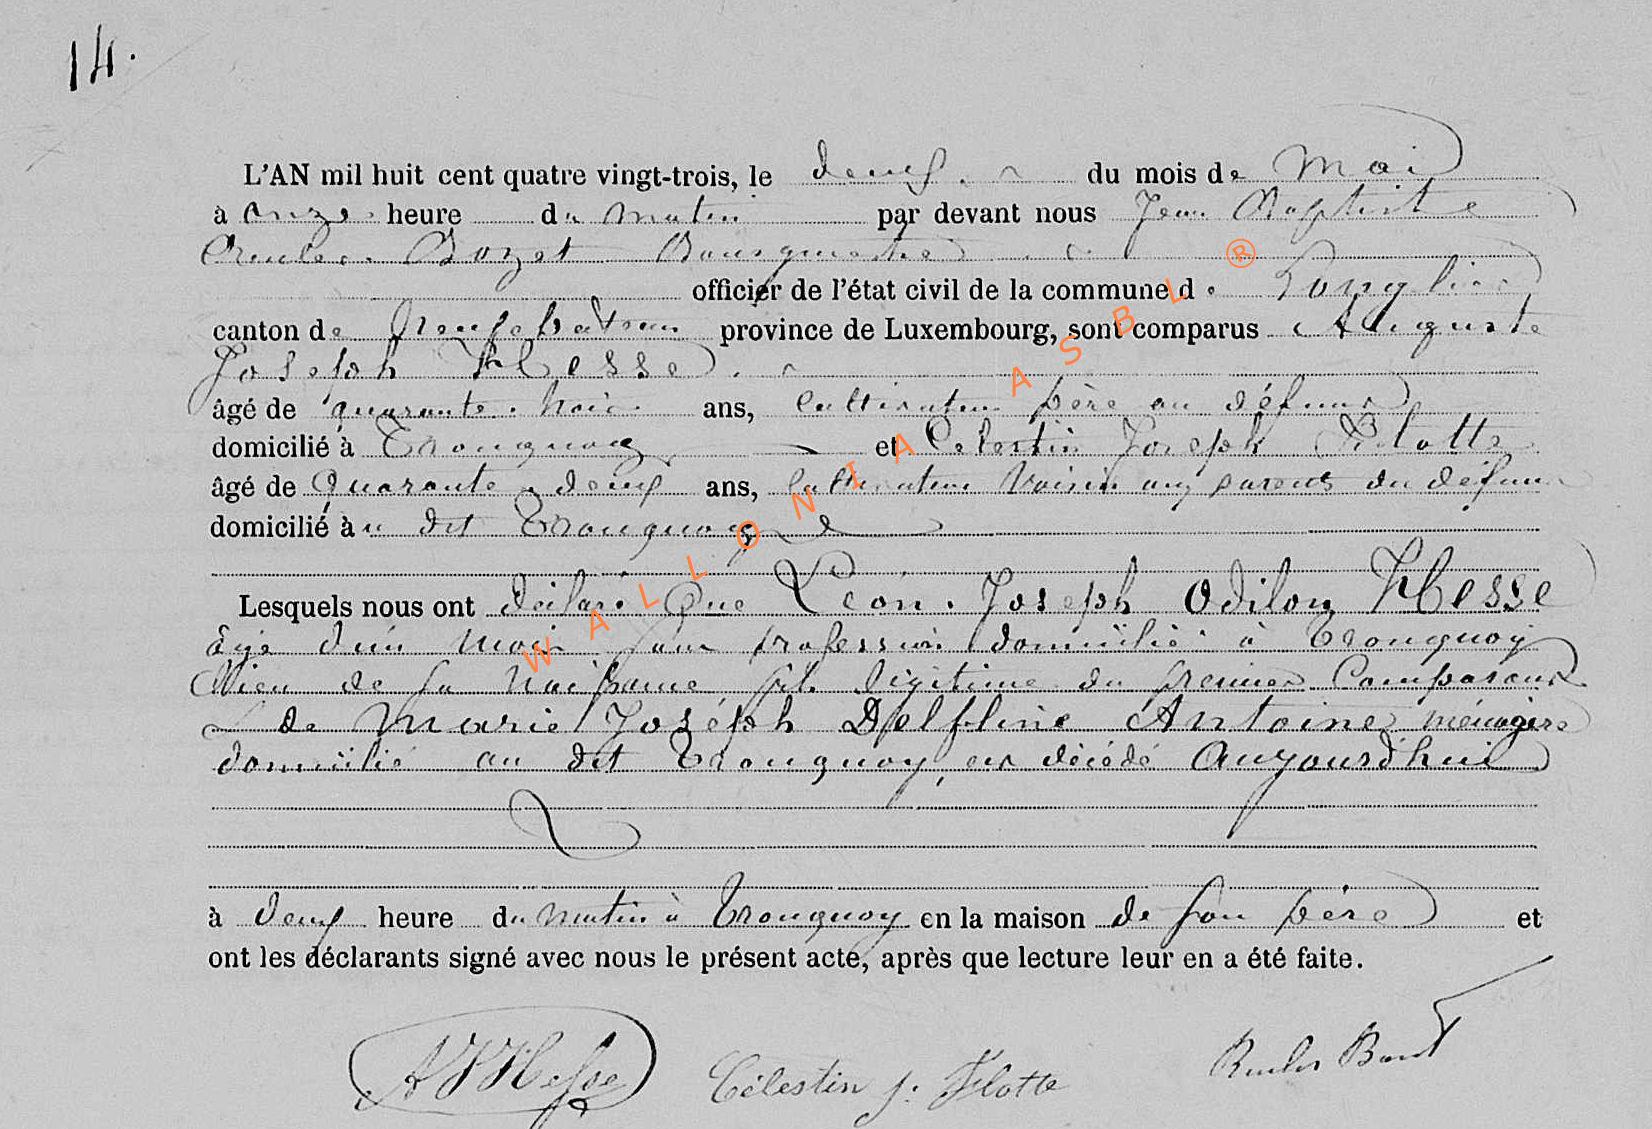 14.
L'AN mil huit cent quatre vingt-trois, le deux du mois de Mai
à onze heure du matin par devant nous Jean Baptiste
Bourgmestre
officier de l'état civil de la commune de Longlier
canton de Neufchateau province de Luxembourg, sont comparus Auguste
Joseph Hesse
âgé de quarante trois ans, cultivateur père au défunt
domicilié à Tronquoy et Celestin Joseph Flotte
âgé de Quarante deux ans, cultivateur Voisin aux parents du défunt
domicilié àu dit Tronquoy
Lesquels nous ont déclaré Que Léon Joseph Odilon Hesse
âgé d'un mois sans profession domicilié à Tronquoy
lieu de sa Naissance, fils légitime du premier Comparant
& de Marie Joséph Delfline Antoine ménagère
domicilié au dit Tronquoy, est décédé Aujourd'hui
à deux heure du matin à Tronquoy en la maison de son père et
ont les déclarants signé avec nous le présent acte, après que lecture leur en a été faite.
AJ Hesse Célestin j. Flotte
WALLONIA ASBL ®